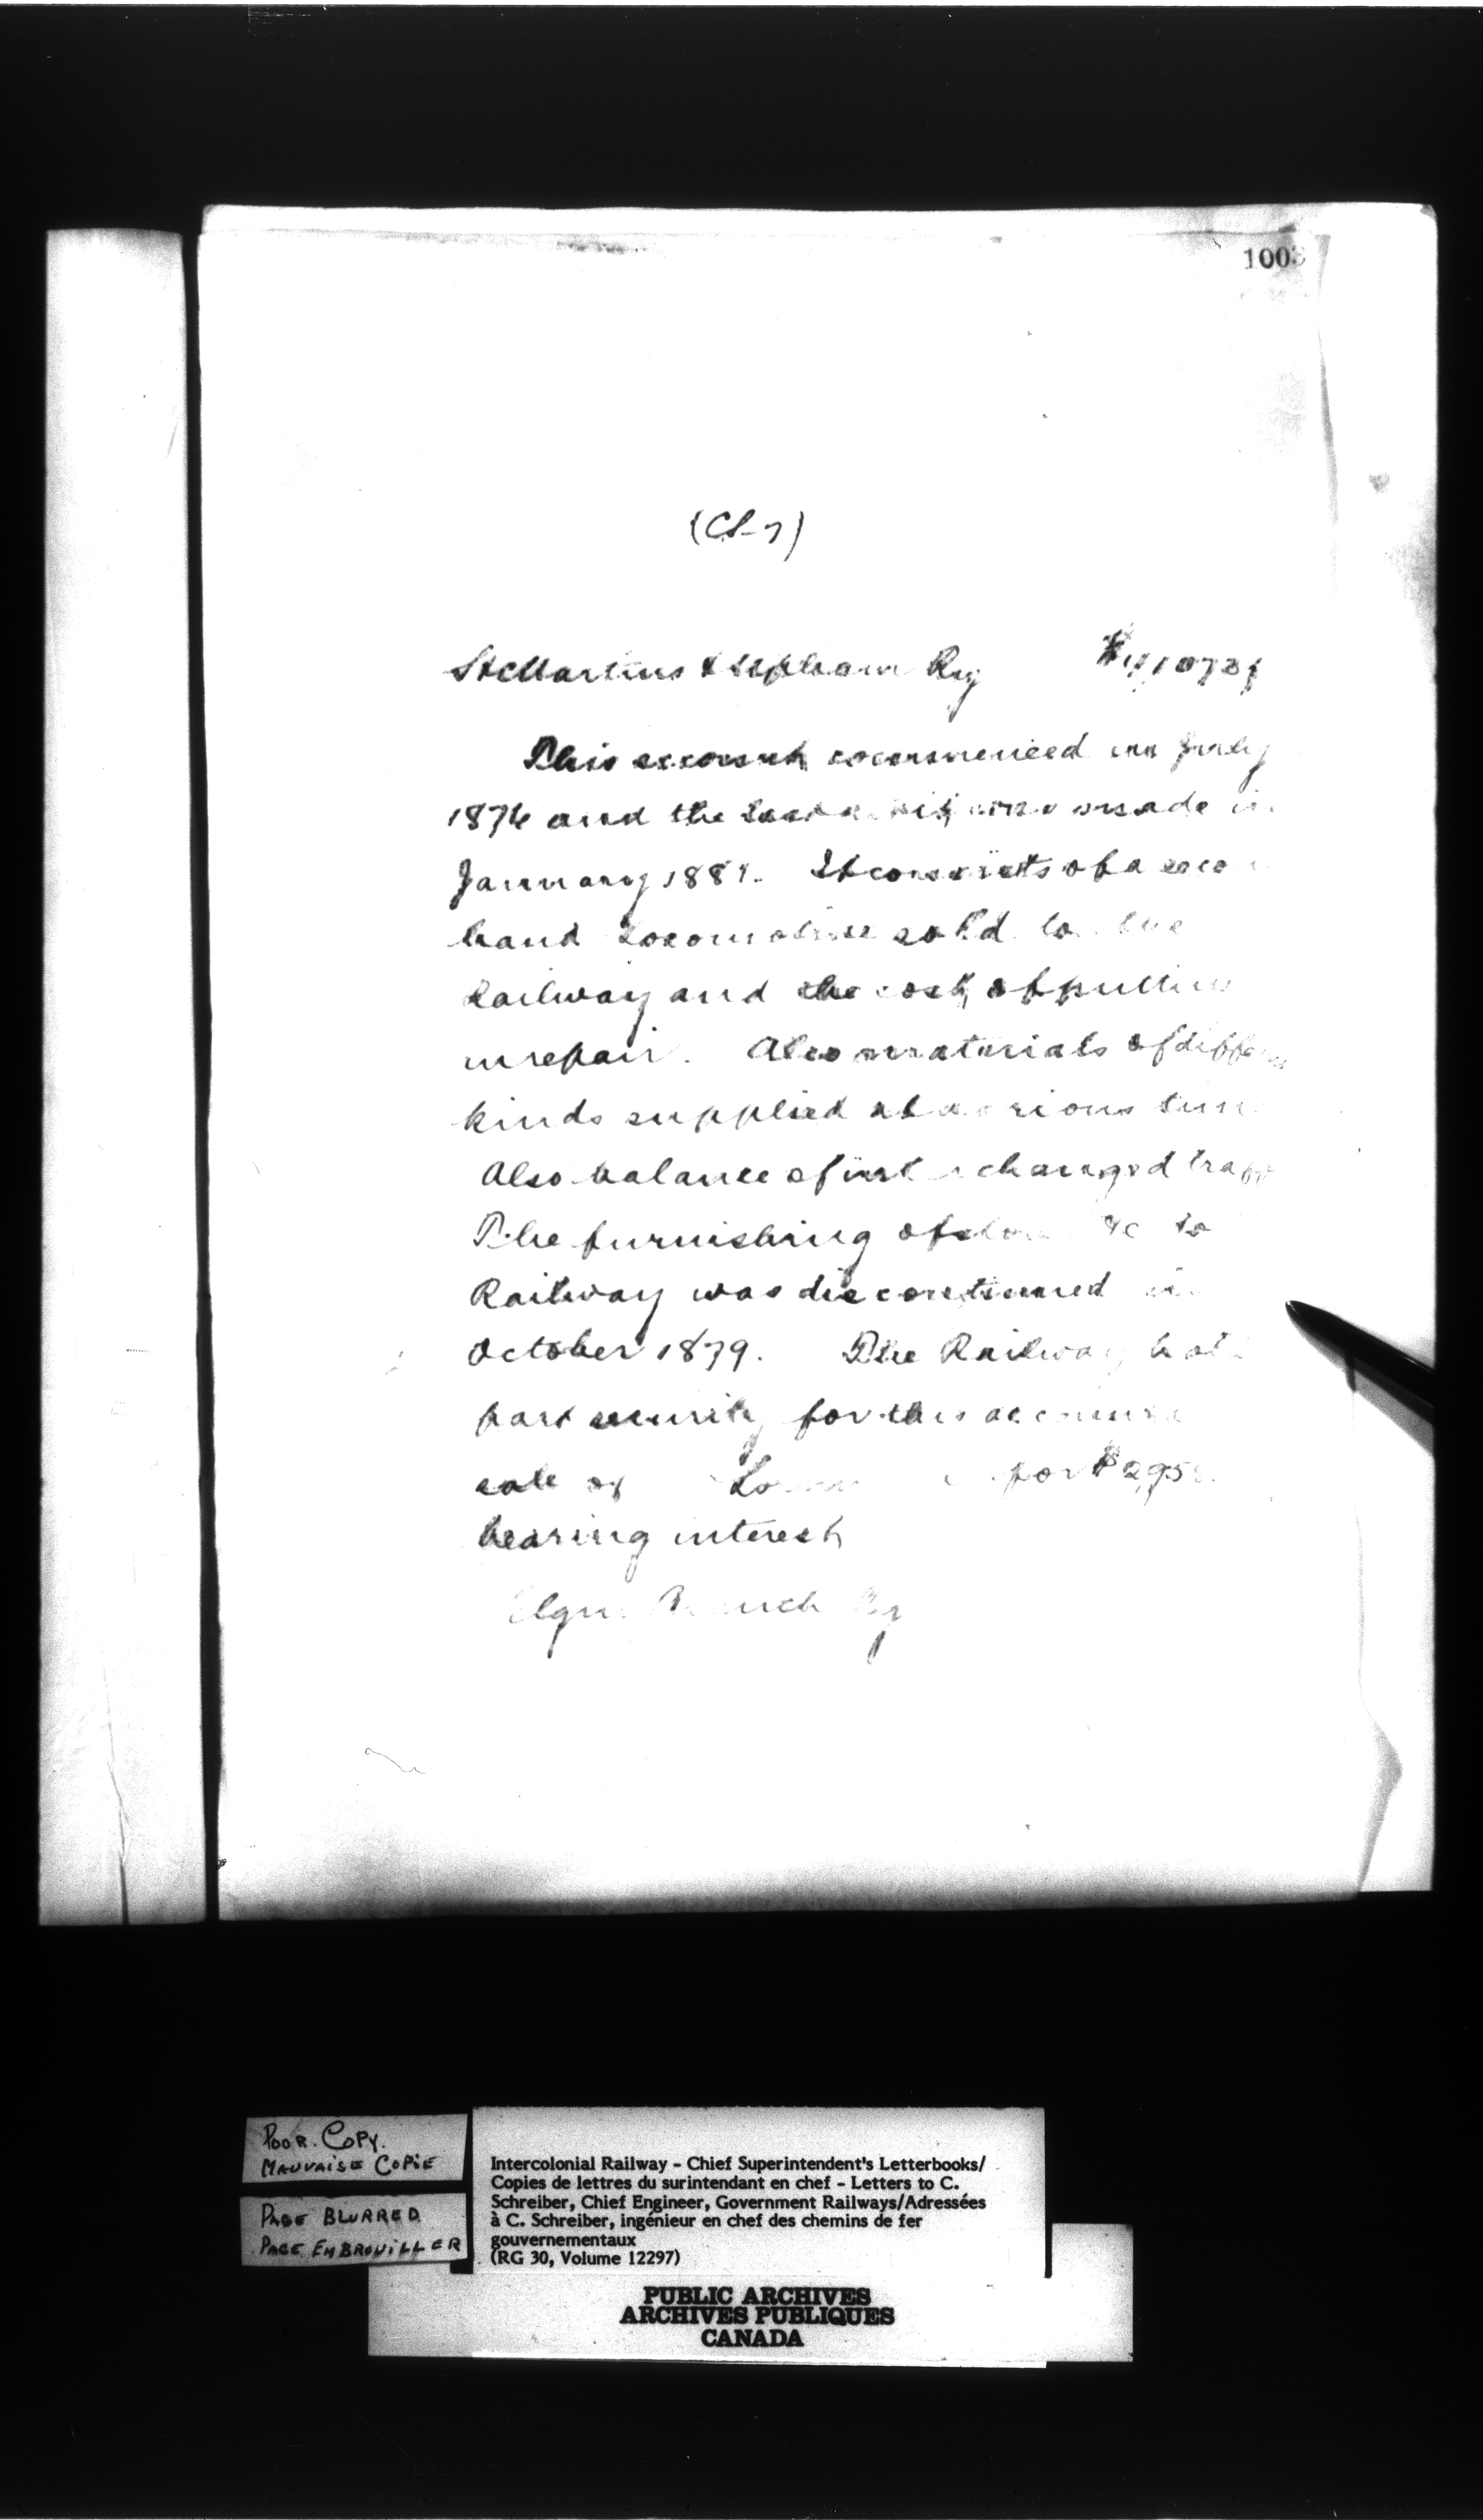 1003
(Cl-7)
St Martins & Upham Ry
This account commenced in July
1876 and the was made in
January 1881. It consists of a
hand Locomotive sold to the
Railway and the cost of putting
in repair. Also materials of
kinds supplied at various
Also balance of charged
The furnishing of &c to
Railway was discontinued in
October 1879. The Railway
part security for this account
sale of for $
bearing interest
Elgin Branch Ry
POOR COPY.
MAUVAISE COPIE
PAGE BLURRED
PAGE EMBROUILLER
Intercolonial Railway - Chief Superintendent's Letterbooks/
Copies de lettres du surintendant en chef - Letters to C.
Schreiber, Chief Engineer, Government Railways/Adressées
à C. Schreiber, ingénieur en chef des chemins de fer
gouvernementaux
(RG 30, Volume 12297)
PUBLIC ARCHIVES
ARCHIVES PUBLIQUES
CANADA